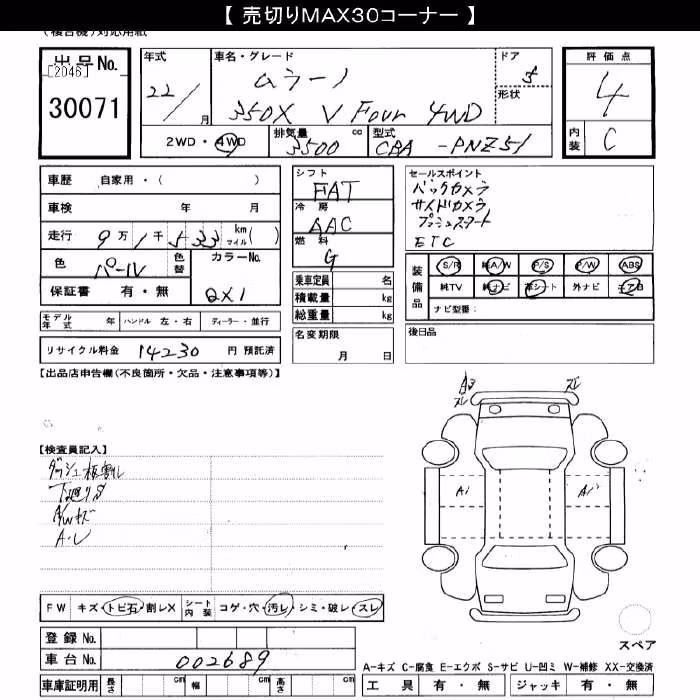 【 売切りMAX30コーナー 】
出品No.
[2046]
30071
年式
22/
月
車名・グレード
ムラーノ
350X V Four 4WD
ドア
5
形状
2WD・4WD
排気量
3500
cc
型式
CBA-PNZ51
評価点
4
内装
C
車歴 自家用・( )
車検 年 月
走行 9万1千533 km マイル( )
色 パール 色替 カラーNo.
保証書 有・無 QX1
モデル年式 年 ハンドル 左・右 ディーラー・並行
リサイクル料金 14230 円 預託済
シフト
FAT
冷房
AAC
燃料
G
乗車定員 名
積載量 kg
総重量 kg
名変期限
月 日
セールスポイント
バックカメラ
サイドカメラ
プッシュスタート
ETC
装備品
S/R 純A/W P/S P/W ABS
純TV 純ナビ 革シート 外ナビ エアB
ナビ型番:
後日品
【出品店申告欄(不良箇所・欠品・注意事項等)】
【検査員記入】
下廻りS
A/Wキズ
FW キズ・トビ石・割レX シート内装 コゲ・穴・汚レ・シミ・破レ・スレ
登録No.
車台No. 002689
車庫証明用 長さ cm 幅 cm 高さ cm
A1
A1
スペア
A-キズ C-腐食 E-エクボ S-サビ U-凹ミ W-補修 XX-交換済
工具 有・無 ジャッキ 有・無